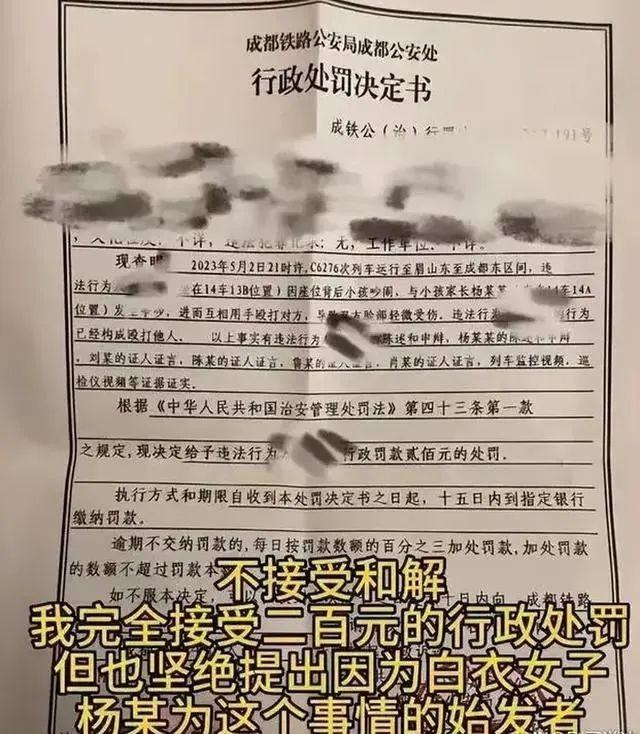 成都铁路公安局成都公安处
行政处罚决定书
成铁公（治）行罚 191号
不详，违法犯罪记录：无，工作单位：不详。
现查明 2023年5月2日21时许，C6276次列车运行至眉山东至成都东区间，违
法行为 在14车13B位置）因座位背后小孩吵闹，与小孩家长杨某某 14车14A
位置）发生争吵，进而互相用手殴打对方，导致双方脸部轻微受伤。违法行为 的行为
已经构成殴打他人。 以上事实有违法行为 陈述和申辩，杨某某的陈述和申辩
刘某的证人证言，陈某的证人证言，鲁某的证人证言，肖某的证人证言，列车监控视频，巡
检仪视频等证据证实。
根据《中华人民共和国治安管理处罚法》第四十三条第一款
之规定，现决定给予违法行为人 行政罚款贰佰元的处罚.
执行方式和期限自收到本处罚决定书之日起，十五日内到指定银行
缴纳罚款。
逾期不交纳罚款的，每日按罚款数额的百分之三加处罚款，加处罚款
的数额不超过罚款本
如不服本决定， 十日内向 成都铁路
不接受和解
我完全接受二百元的行政处罚
但也坚绝提出因为白衣女子
杨某为这个事情的始发者